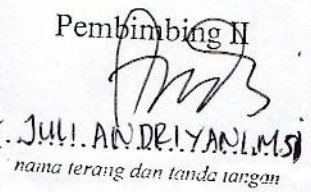 Pembimbing II
JULI ANDRIYANI, M.Si
nama terang dan tanda tangan